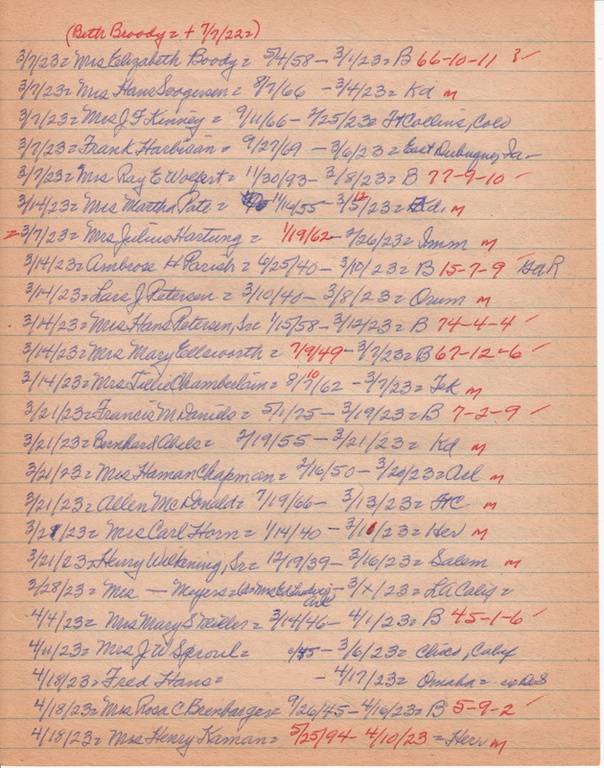 (Beth Broody = + 7/7/22 =)
3/7/23 = Mrs Elizabeth Boody = 5/4/58 - 3/1/23 = B 66-10-11
3/7/23 = Mrs Hans Soogensen = 8/7/66 - 3/4/23 = Kd m
3/7/23 = Mrs J F Kinney = 9/11/66 - 2/25/23 = Ft Collins, Colo
3/7/23 = Frank Harbison = 9/27/69 - 3/6/23 = East Dubuque, Ia -
3/7/23 = Mrs Ray E Wolfert = 11/30/93 - 3/8/23 = B 77-9-10
3/14/23 = Mrs Martha Pate = 1/16/55 - 3/5/23 = m
= 3/7/23 = Mrs Julius Hartung = 1/19/62 - 2/26/23 = Imm m
3/14/23 = Ambrose H Parish = 6/25/40 - 3/10/23 = B 15-7-9 GAR
3/14/23 = Lars J Petersen = 3/10/40 - 3/8/23 = Orum m
3/14/23 = Mrs Hans Petersen, Sr = 1/15/58 - 3/12/23 = B 74-4-4
3/14/23 = Mrs Mary Eellsworth = 7/9/49 - 3/7/23 = B 67-12-6
3/14/23 = Mrs Tillie Chamberlain = 8/10/62 - 3/7/23 = Tek m
3/21/23 = Francis McDaniels = 5/1/75 - 3/19/23 = B 7-2-9
3/21/23 = Bernhard Abels = 2/19/55 - 3/21/23 = Kd m
3/21/23 = Mrs Haman Chapman = 2/16/50 - 3/20/23 = Arl m
3/21/23 = Allen McDonald = 7/19/66 - 3/13/23 = FtC m
3/21/23 = Mrs Carl Horn = 1/14/40 - 3/11/23 = Her m
3/21/23 = Henry Wilkening, Sr = 12/19/39 - 3/16/23 = Salem m
3/28/23 = Mrs — Meyers = Mrs Ed Ludwig - 3/x/23 = LA Calif =
Arl
4/4/23 = Mrs Mary S Miller = 3/14/46 - 4/1/23 = B 45-1-6
4/11/23 = Mrs J W Sproul = - 3/6/23 = Chico, Calif
4/18/23 = Fred Hans = - 4/17/23 = Omaha =
4/18/23 = Mrs Rosa C Brenbarger = 9/26/45 - 4/16/23 = B 5-9-2
4/18/23 = Mrs Henry Kaman = 5/25/94 - 4/10/23 = Her m